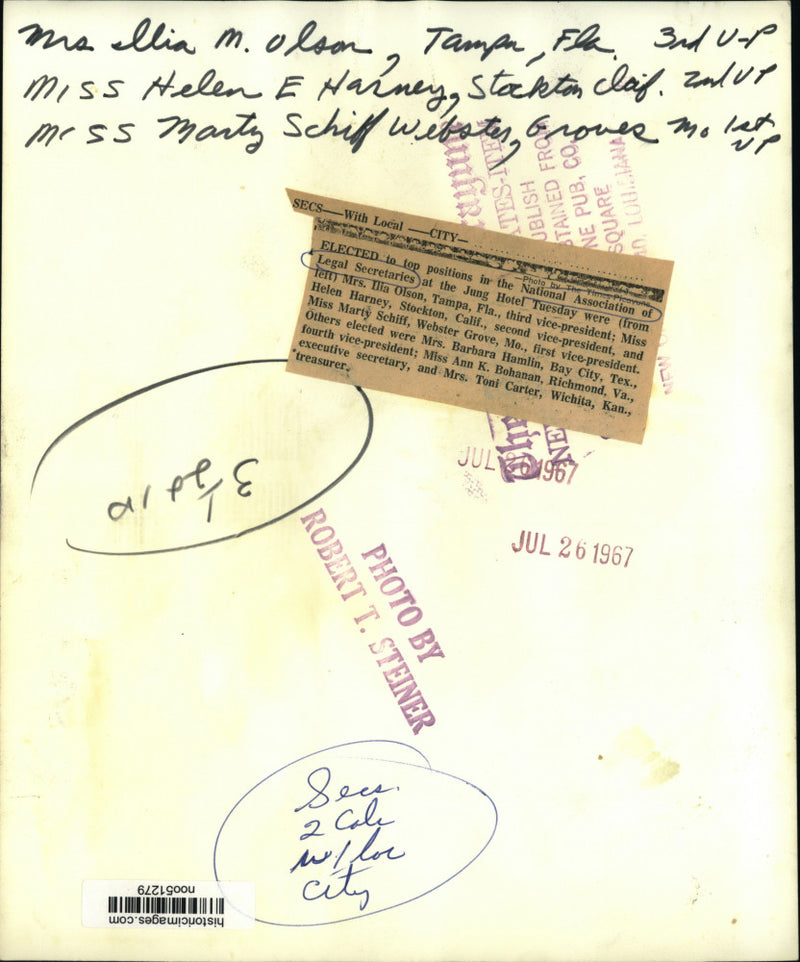 Mrs Illia M. Olson, Tampa, Fla. 3rd V-P
Miss Helen E Harney, Stockton Claif. 2nd VP
Miss Marty Schiff Webster, Groves Mo. 1st
VP
SECS——With Local ——CITY—
Photo by The Times-Picayune
ELECTED to top positions in the National Association of
Legal Secretaries at the Jung Hotel Tuesday were (from
left) Mrs. Ilia Olson, Tampa, Fla., third vice-president; Miss
Helen Harney, Stockton, Calif., second vice-president, and
Miss Marty Schiff, Webster Grove, Mo., first vice-president.
Others elected were Mrs. Barbara Hamlin, Bay City, Tex.,
fourth vice-president; Miss Ann K. Bohanan, Richmond, Va.,
executive secretary, and Mrs. Toni Carter, Wichita, Kan.,
treasurer.
TATES-ITEM
PUBLISH
OBTAINED FROM
NE PUB. CO.
SQUARE
LOUISIANA
NEW
The
NE
JUL 26 1967
JUL 26 1967
PHOTO BY
ROBERT T. STEINER
Secs.
2 Col
w/loc
City
historicimages.com
noo51279